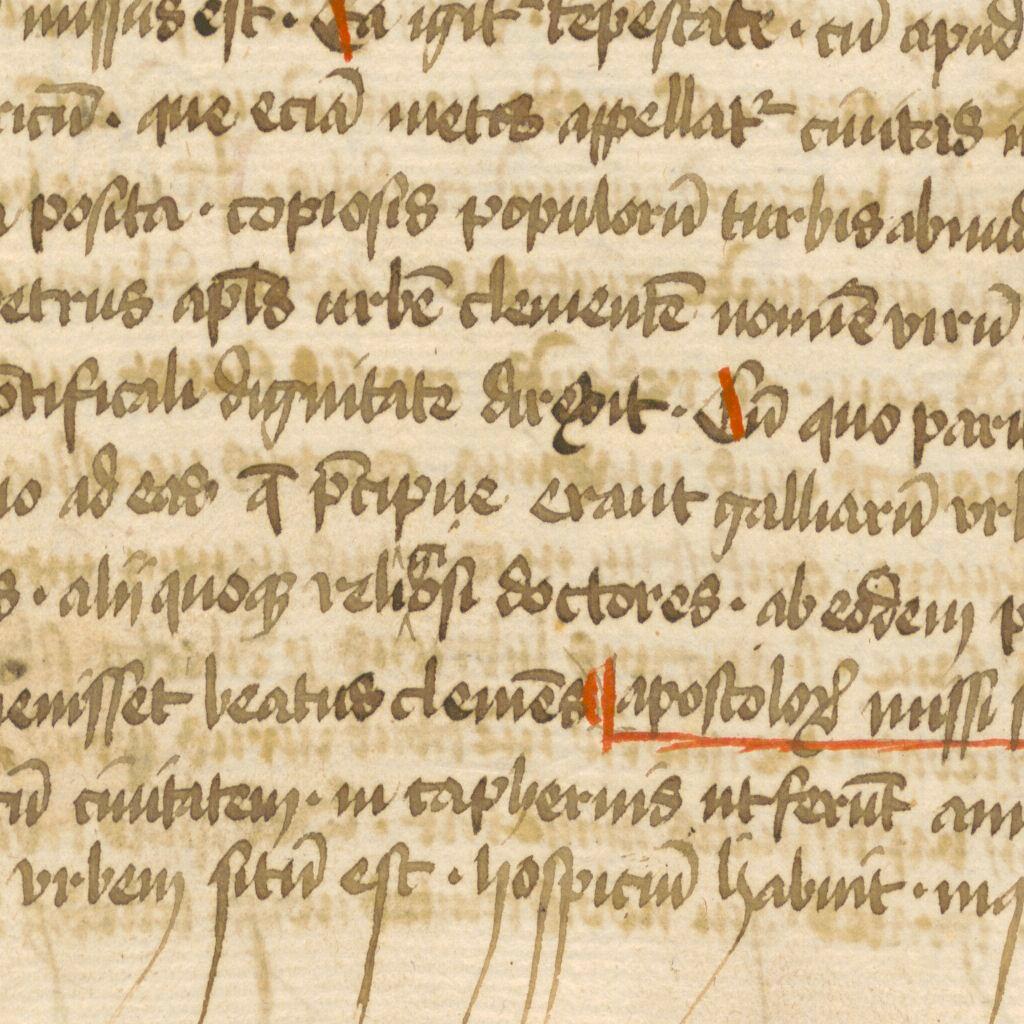 missus est. Ea igit² tēpestate. cū apud
ricū. que eciā metis appellat² ciuitas
posita. copiosis populorū turbis abund
etrus apl̄s urbē clementē nomīe virū
ōtificali dignitate direxit. Cū quo pari
ad eas q̄ p̄cipue erant galliarū vrb
s. alij quoqꝫ religiosi doctores. ab eodem p
uenisset beatus clemēs ¶ apostoloꝝ missi
cū ciuitatem. in caphernis ut ferūt
vrbem sitū est. hospiciū habuit.